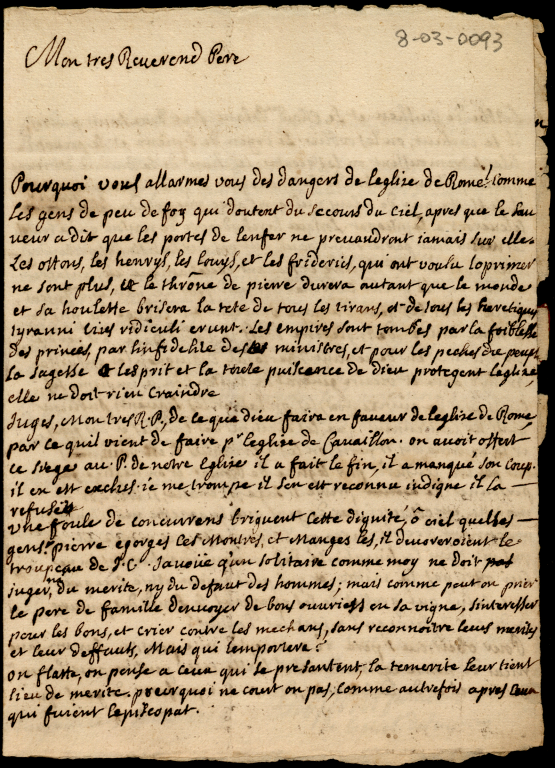 8-03-0093
Mon tres Reverend Pere
Pourquoi vous allarmes vous des dangers de leglize de Rome! comme
Les gens de peu de foy qui doutent du secours du Ciel, apres que le Sau
veur a dit que les portes de lenfer ne prevaudront iamais sur elle.
Les ottons, les henrys, les louys, et les frideries, qui ont voulu loprimer
ne sont plus, et le thrône de pierre durera autant que le monde
et sa houlette brisera la tete de tous les tirans, et de tous les heretiques
tyranni eius ridiculi erunt. Les empires sont tombés par la foiblesse
des princes, par linfidelité des ministres, et pour les peches du peuple
La sagesse et lesprit et la toute puissance de dieu protegent leglize,
elle ne doit rien craindre
Iuges, Mon tres R. P., de ce que dieu faira en faveur de leglize de Rome
par ce quil vient de faire pr leglize de Cavaillon. on avoit offert
ce siege au P. de notre Eglize il a fait le fin, il a manqué son Coup.
il en est exclus. ie me trompe il sen est reconnu indigne il la
refusé
une foule de concurrens briguent cette dignite, ô ciel quelles
gens. pierre egorges ces Montres, et Manges les, il devoreroient le
troupeau de J. C. Javoüe qun solitaire comme moy ne doit pas
juger, du merite, ny du defaut des hommes; mais comme peut on prier
le pere de famille denvoyer de bons ouvriers en sa vigne, sinteresser
pour les bons, et crier contre les mechans, sans reconnoitre leurs merites
et leur deffauts, Mais qui lemportera?
on flatte, on pense a ceux qui se presantent, la temerite leur tient
lieu de merite. pourquoi ne court on pas, comme autrefois apres ceux
qui fuient lepiscopat.